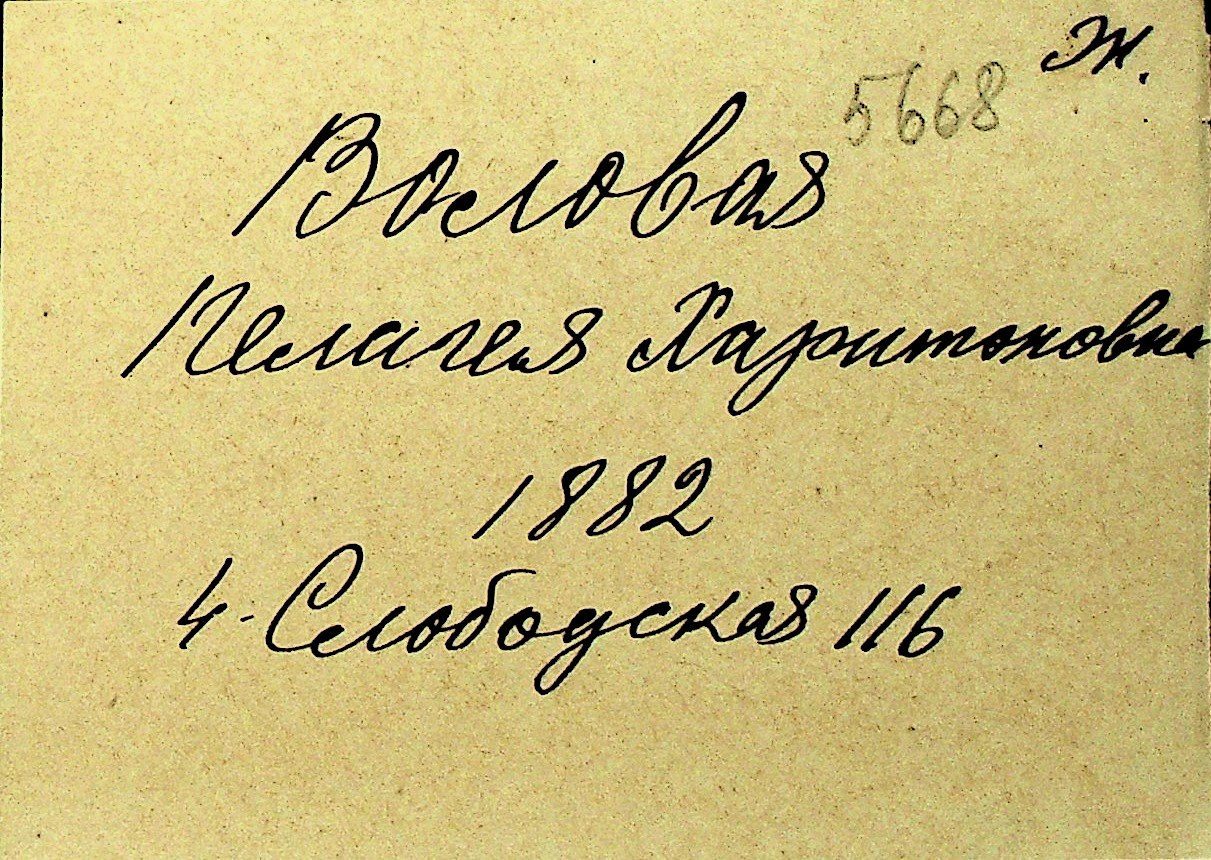 ж.
5668
Воловая
Пелагея Харитоновна
1882
4-Слободская 116